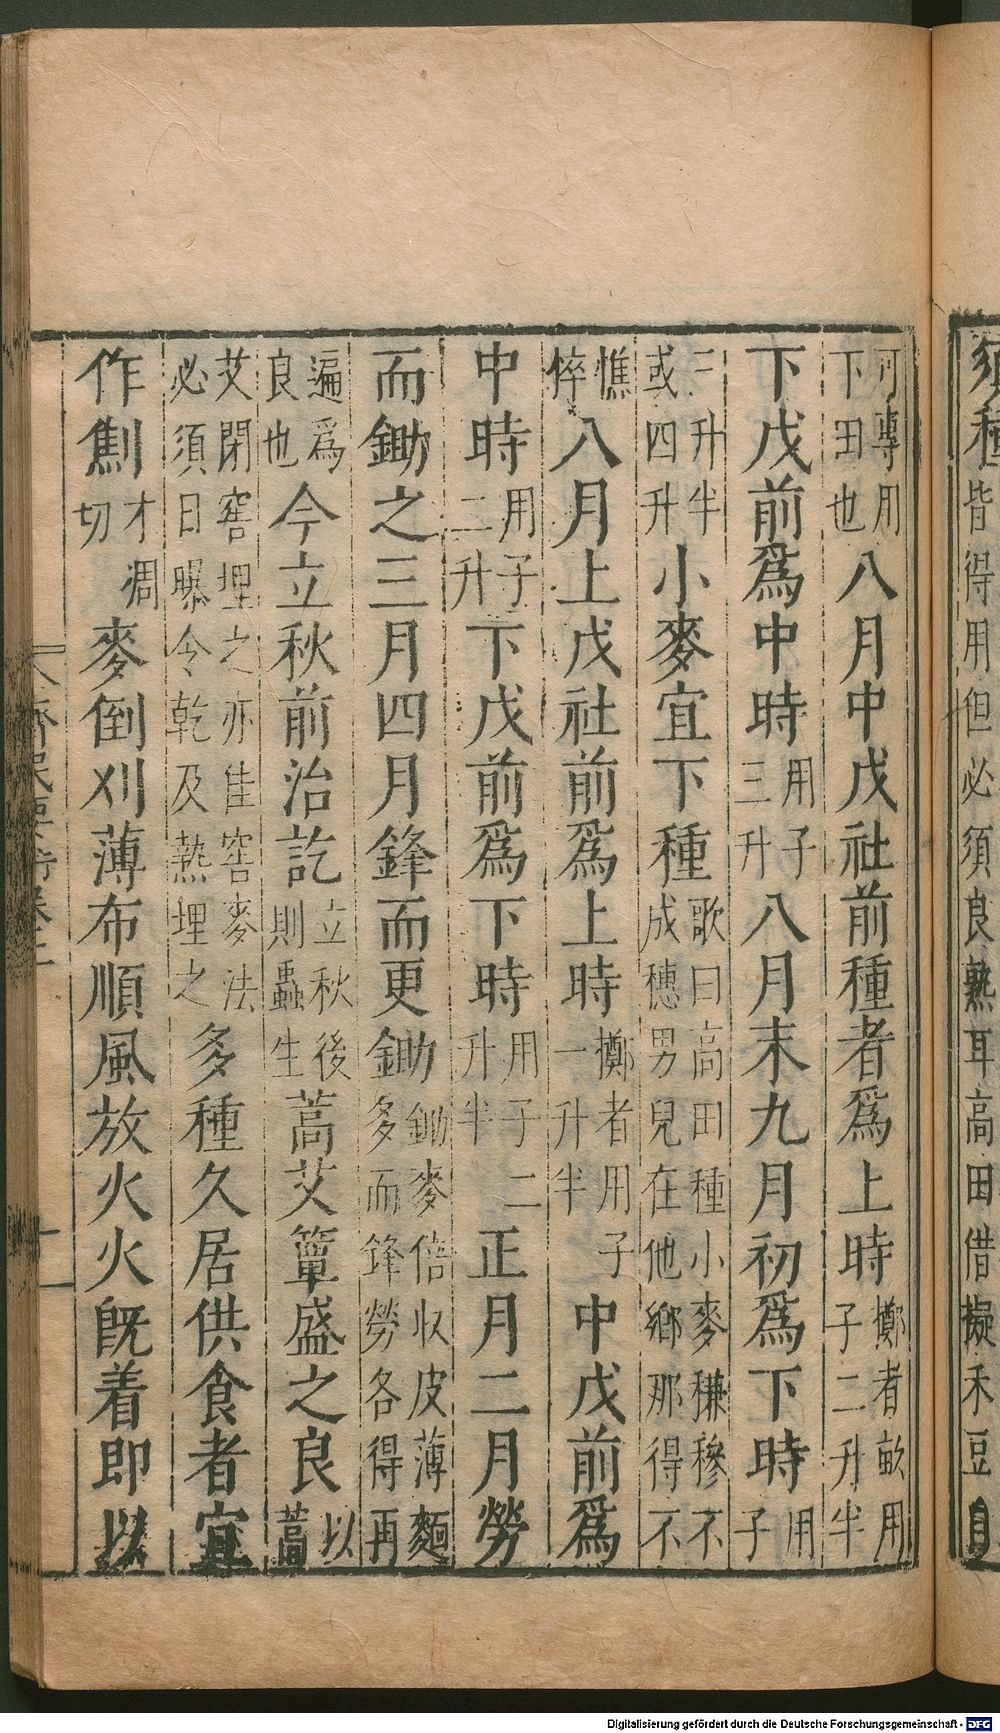 須種皆得用但必須良熟耳高田借擬禾豆自
可專用下田也八月中戊社前種者爲上時擲者畝用子二升半
下戊前爲中時用子三升八月末九月初爲下時用子
三升半或四升小麥宜下種歌曰高田種小麥稴穇不成穗男兒在他鄉那得不
憔悴八月上戊社前爲上時擲者用子一升半中戊前爲
中時用子二升下戊前爲下時用子二升半正月二月勞
而鋤之三月四月鋒而更鋤鋤麥倍收皮薄麵多而鋒勞各得再
遍爲良也今立秋前治訖立秋後則蟲生蒿艾簞盛之良以蒿
艾閉窖埋之亦佳窖麥法必須日曝令乾及熱埋之多種久居供食者宜
作劁才凋切麥倒刈薄布順風放火火旣着即以
齊民要術卷二
Digitalisierung gefördert durch die Deutsche Forschungsgemeinschaft - DFG